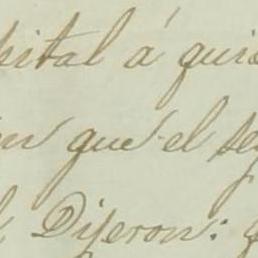 pital á quie
en que el se
Dijeron: